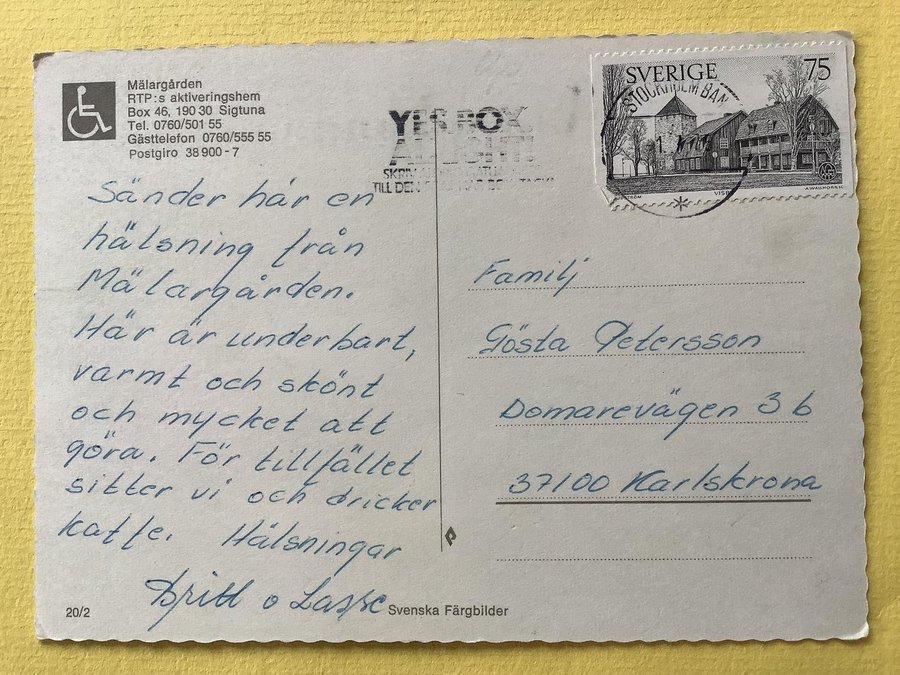 Mälargården
RTP:s aktiveringshem
Box 46, 190 30 Sigtuna
Tel. 0760/501 55
Gästtelefon 0760/555 55
Postgiro 38 900 - 7
SVERIGE 75
STOCKHOLM BAN
A.WALLHORN SC.
Sänder här en
hälsning från
Mälargården.
Här är underbart,
varmt och skönt
och mycket att
göra. För tillfället
sitter vi och dricker
kaffe. Hälsningar
Britt o Lasse
Familj
Gösta Petersson
Domarevägen 3 b
37100 Karlskrona
20/2
Svenska Färgbilder